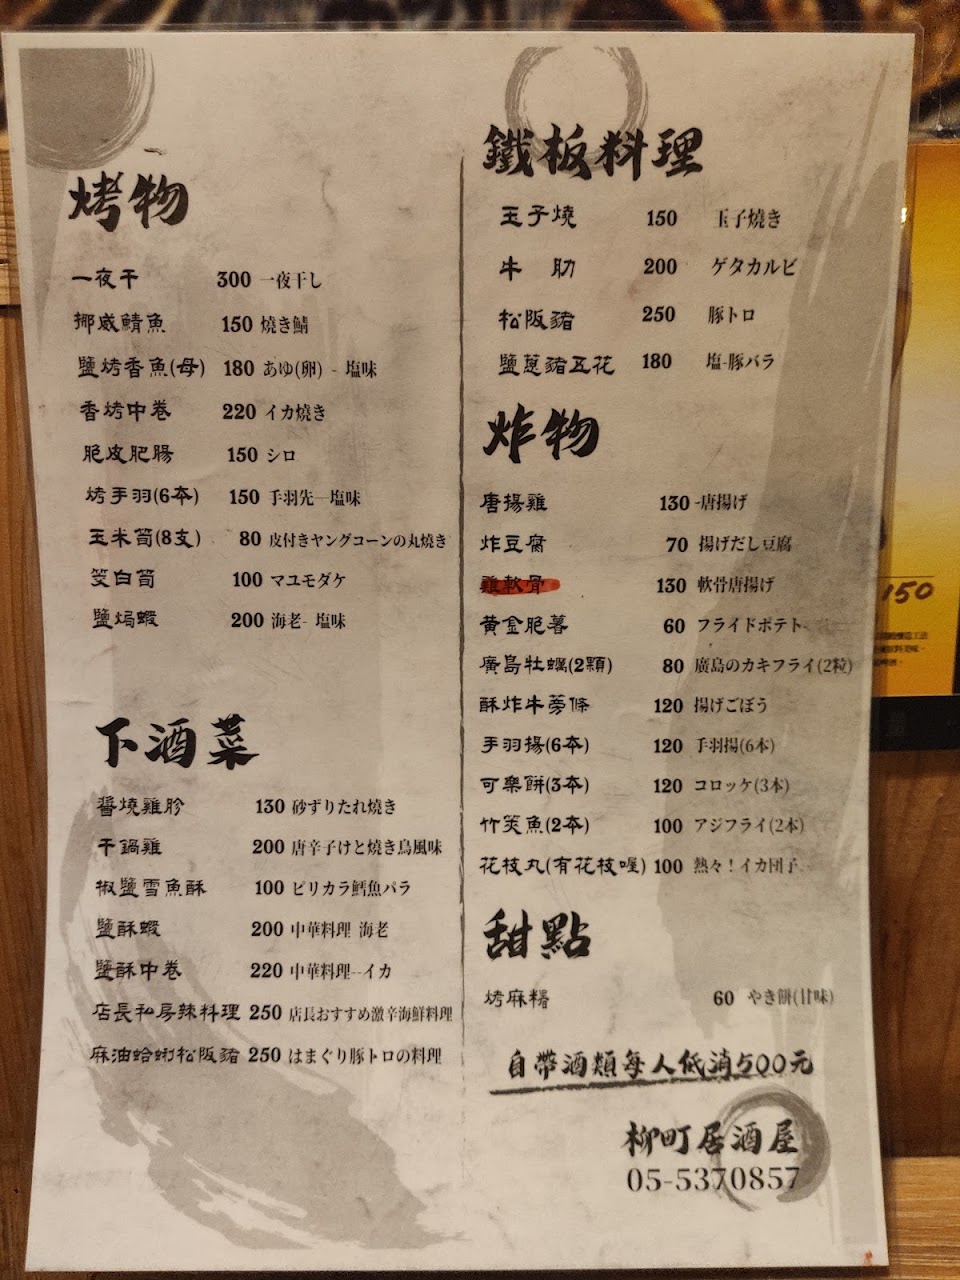 烤物
一夜干 300 一夜干し
挪威鯖魚 150 焼き鯖
鹽烤香魚(母) 180 あゆ(卵) - 塩味
香烤中卷 220 イカ焼き
脆皮肥腸 150 シロ
烤手羽(6本) 150 手羽先—塩味
玉米筍(8支) 80 皮付きヤングコーンの丸焼き
筊白筍 100 マユモダケ
鹽焗蝦 200 海老- 塩味
下酒菜
醬燒雞胗 130 砂ずりたれ焼き
干鍋雞 200 唐辛子けと焼き鳥風味
椒鹽雪魚酥 100 ピリカラ鱈魚パラ
鹽酥蝦 200 中華料理 海老
鹽酥中卷 220 中華料理--イカ
店長私房辣料理 250 店長おすすめ激辛海鮮料理
麻油蛤蜊松阪豬 250 はまぐり豚トロの料理
鐵板料理
玉子燒 150 玉子焼き
牛 肋 200 ゲタカルビ
松阪豬 250 豚トロ
鹽蔥豬五花 180 塩-豚バラ
炸物
唐揚雞 130 -唐揚げ
炸豆腐 70 揚げだし豆腐
雞軟骨 130 軟骨唐揚げ
黃金脆薯 60 フライドポテト
廣島牡蠣(2顆) 80 廣島のカキフライ(2粒)
酥炸牛蒡條 120 揚げごぼう
手羽揚(6本) 120 手羽揚(6本)
可樂餅(3本) 120 コロッケ(3本)
竹筴魚(2本) 100 アジフライ(2本)
花枝丸(有花枝喔) 100 熱々！イカ団子
甜點
烤麻糬 60 やき餅(甘味)
自帶酒類每人低消500元
柳町居酒屋
05-5370857
150